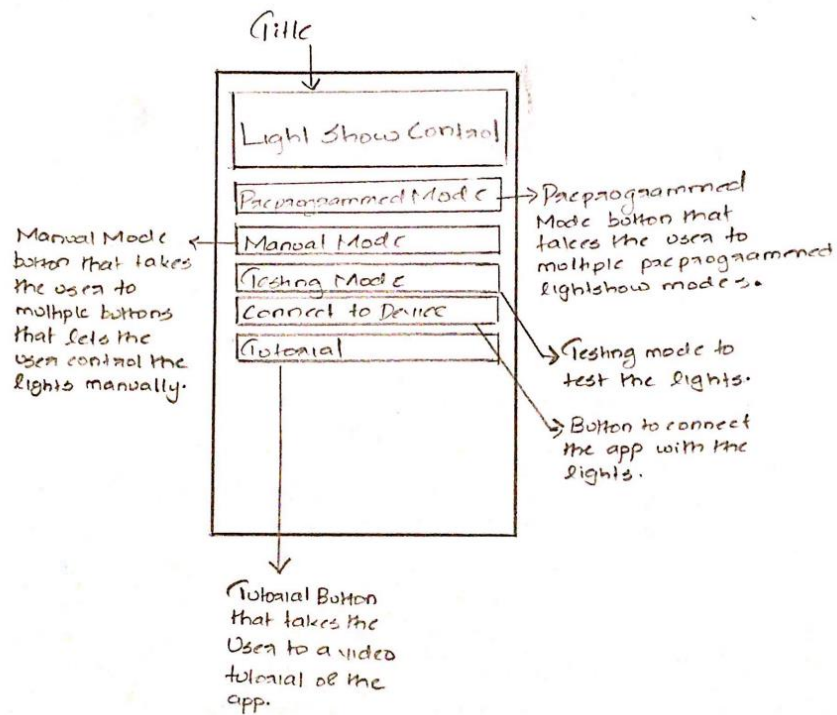 Title
Light Show Control
Preprogrammed Mode
Manual Mode
Testing Mode
Connect to Device
Tutorial
Preprogrammed
Mode button that
takes the user to
multiple preprogrammed
lightshow modes.
Manual Mode
button that takes
the user to
multiple buttons
that lets the
user control the
lights manually.
Testing mode to
test the lights.
Button to connect
the app with the
lights.
Tutorial Button
that takes the
User to a video
tutorial of the
app.